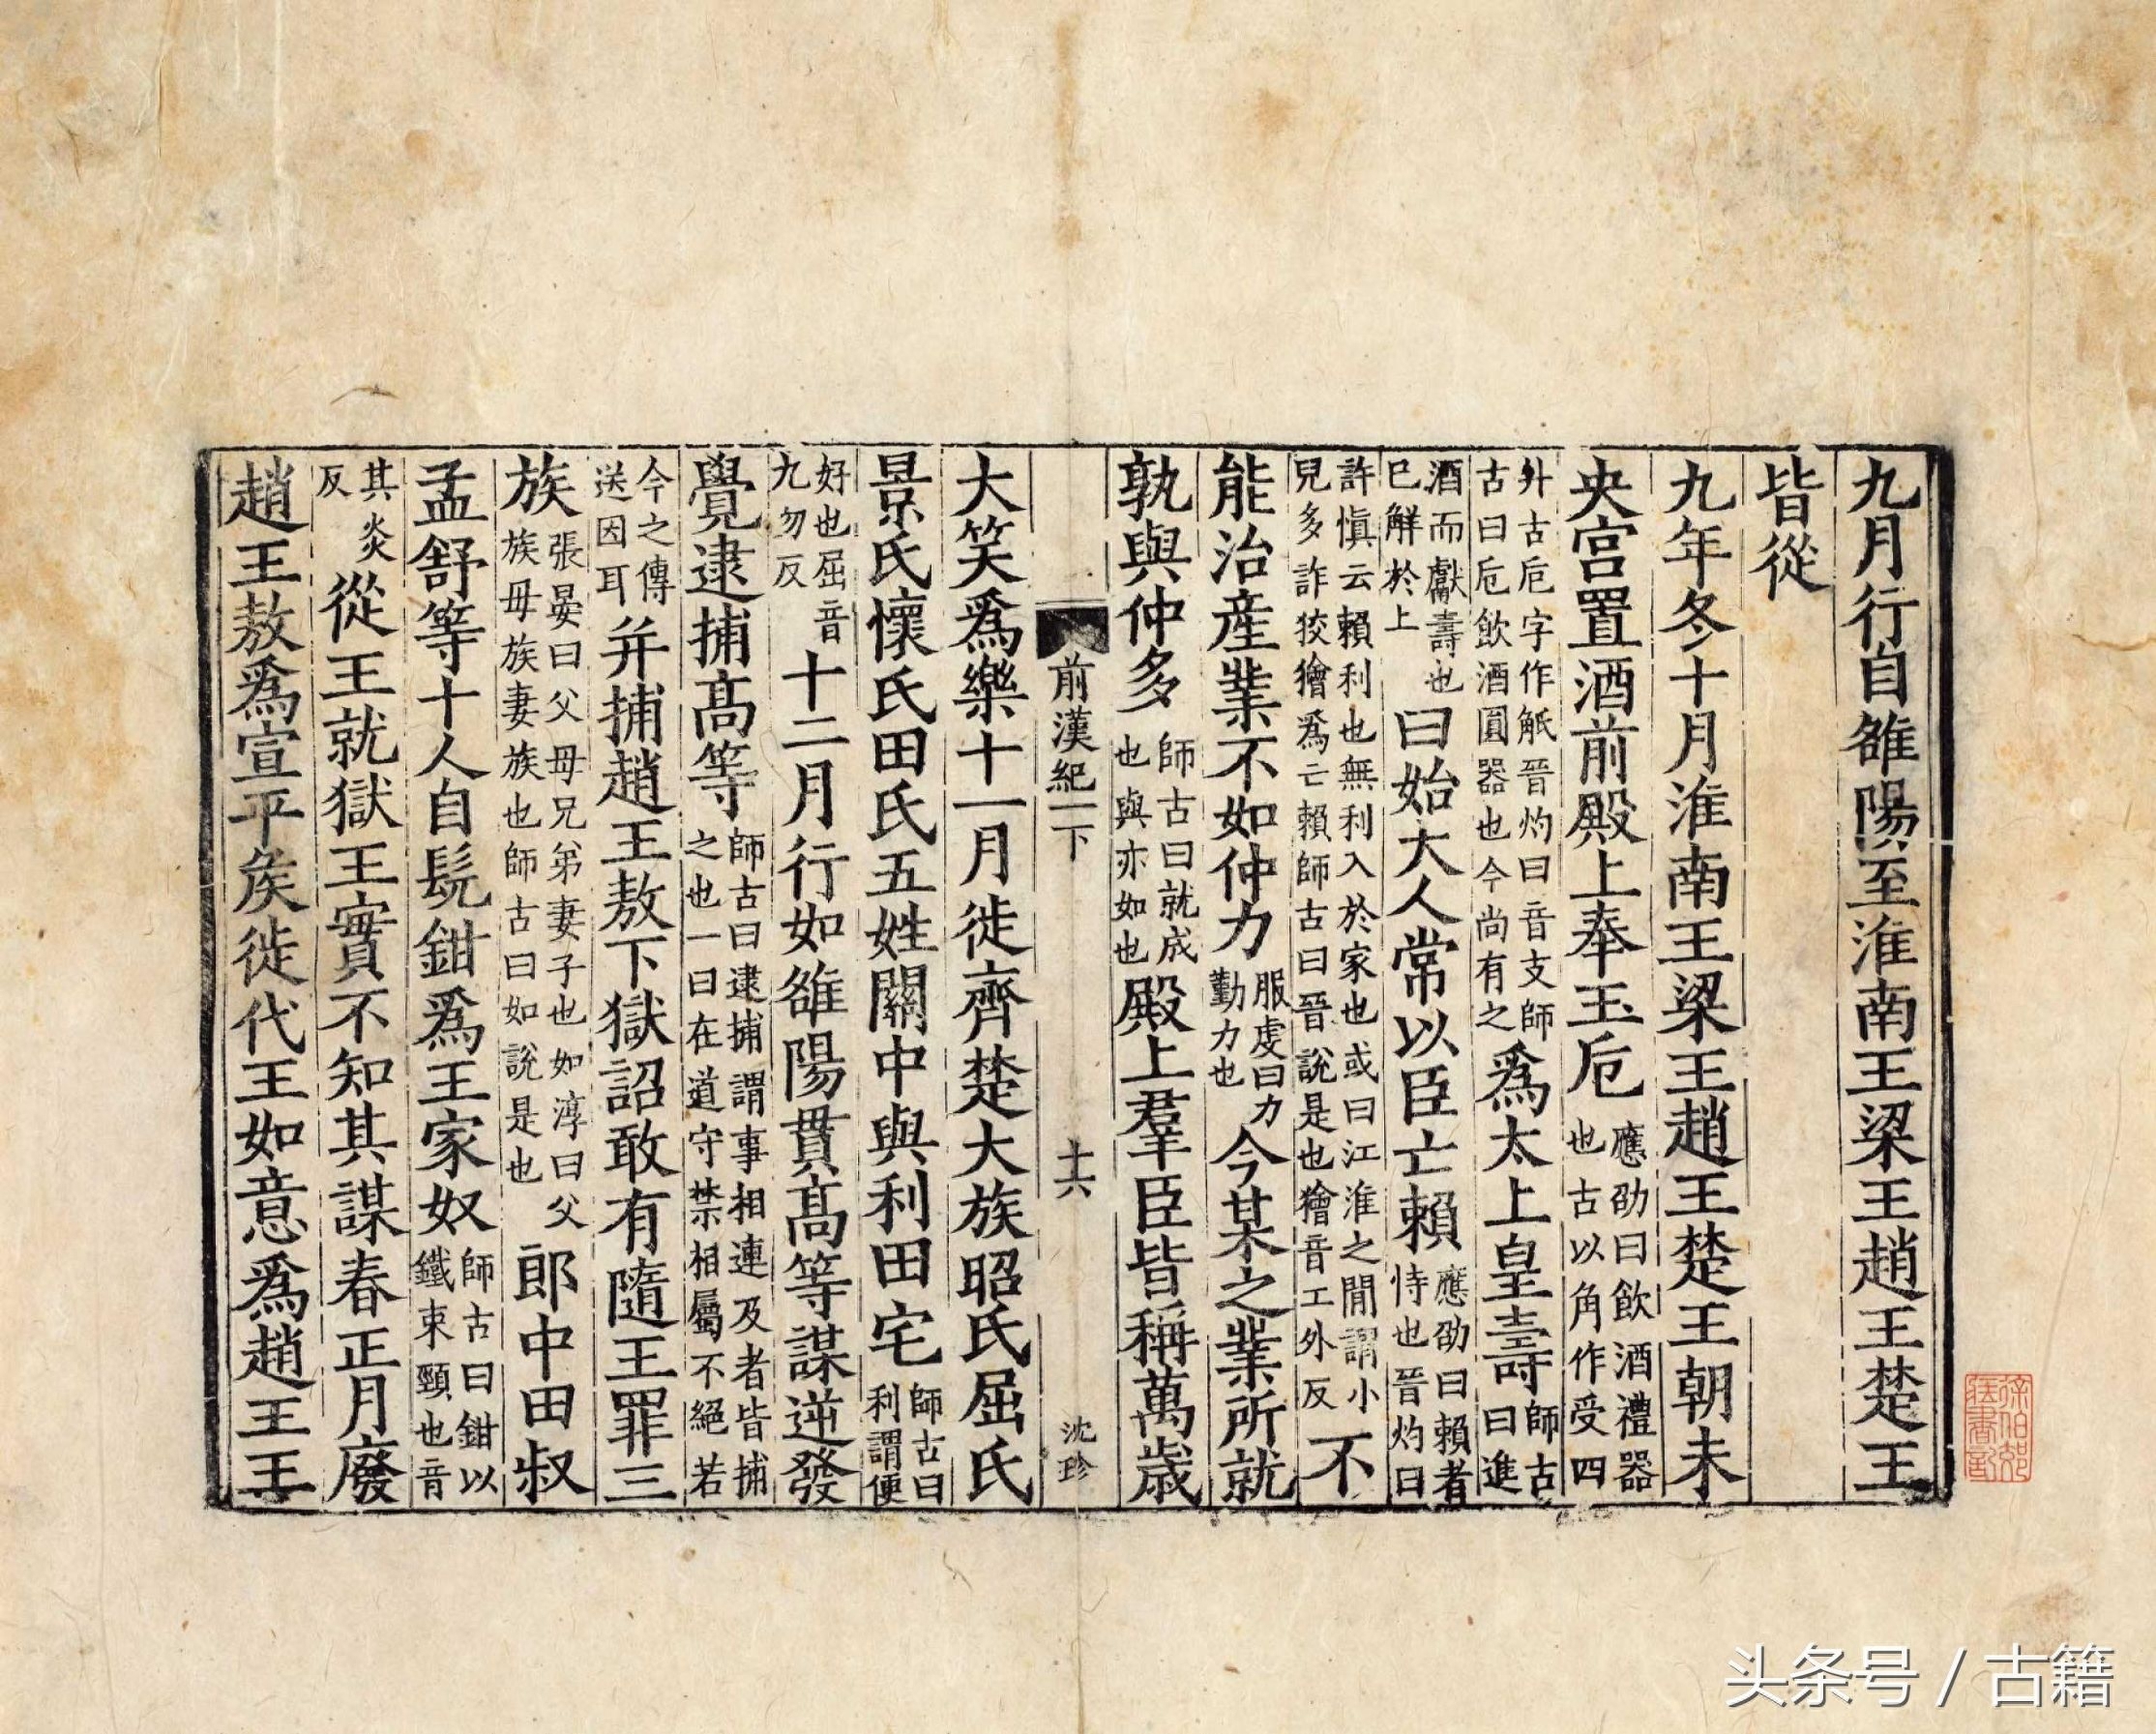 九月行自雒陽至淮南王梁王趙王楚王
皆從
九年冬十月淮南王梁王趙王楚王朝未
央宮置酒前殿上奉玉卮應劭曰飲酒禮器也古以角作受四
升古卮字作觝晉灼曰音支師古曰卮飲酒圓器也今尚有之爲太上皇壽師古曰進
酒而獻壽也已解於上曰始大人常以臣亡賴應劭曰賴者恃也晉灼曰
許慎云賴利也無利入於家也或曰江淮之閒謂小兒多詐狡獪爲亡賴師古曰晉說是也獪音工外反不
能治產業不如仲力服虔曰力勤力也今某之業所就
孰與仲多師古曰就成也與亦如也殿上羣臣皆稱萬歲
前漢紀一下 十六 沈珍
大笑爲樂十一月徙齊楚大族昭氏屈氏
景氏懷氏田氏五姓關中與利田宅師古曰利謂便
好也屈音九勿反十二月行如雒陽貫高等謀逆發
覺逮捕高等師古曰逮捕謂事相連及者皆捕之也一曰在道守禁相屬不絕若
今之傳送因耳并捕趙王敖下獄詔敢有隨王罪三
族張晏曰父母兄弟妻子也如淳曰父族母族妻族也師古曰如說是也郎中田叔
孟舒等十人自髡鉗爲王家奴師古曰鉗以鐵束頸也音
其炎反從王就獄王實不知其謀春正月廢
趙王敖爲宣平矦徙代王如意爲趙王王
头条号 / 古籍